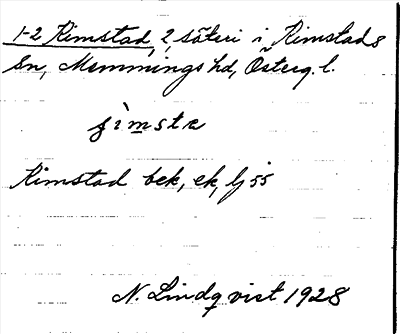 1-2 Rimstad, 2, säteri i Rimstads
sn, Memmings hd, Österg. l.
rìmsta
Rimstad bek, ek, lj 55
N. Lindqvist 1928